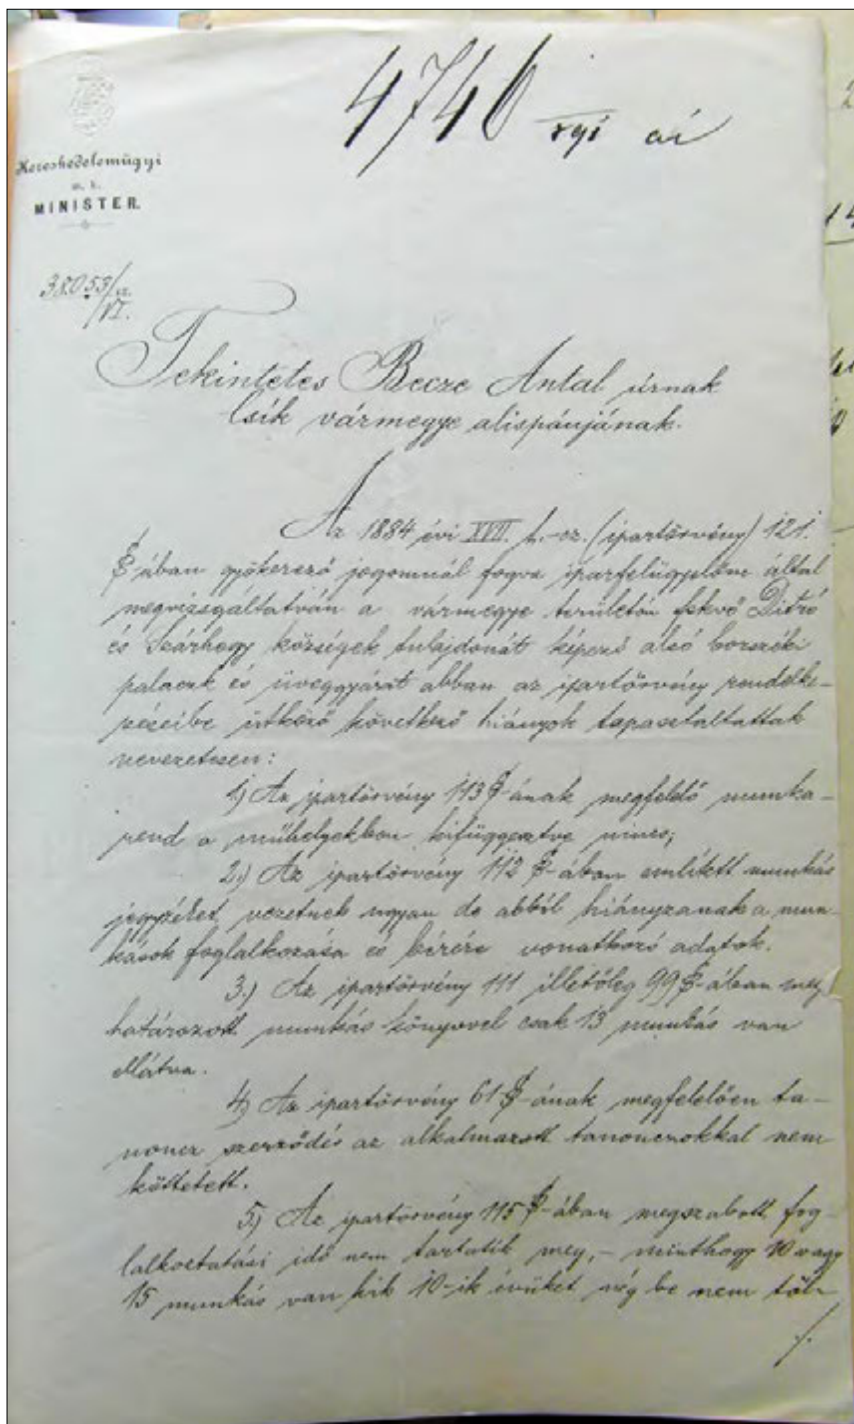 4746
Kereskedelemügyi
m. k.
MINISTER.
38053/
VI.
Tekintetes Becze Antal úrnak
Csík vármegye alispánjának.
Az 1884 évi XVII. t.-cz. (ipartörvény) 121.
§-ában gyökerező jogomnál fogva iparfelügyelőm által
megvizsgáltatván a vármegye területén fekvő Ditró
és Szárhegy községek tulajdonát képező alsó borszéki
palaczk és üveggyárát abban az ipartörvény rendelke-
zéseibe ütköző következő hiányok tapasztaltattak
nevezetesen:
1.) Az ipartörvény 113 §-ának megfelelő munka-
rend a műhelyekben kifüggesztve nincs;
2.) Az ipartörvény 112 §-ában említett munkás
jegyzéket vezetnek ugyan de abból hiányzanak a mun-
kások foglalkozása és bérére vonatkozó adatok.
3.) Az ipartörvény 111 illetőleg 99 §-ában meg
határozott munkás könyvvel csak 13 munkás van
ellátva.
4.) Az ipartörvény 61 §-ának megfelelően ta-
noncz szerződés az alkalmazott tanonczokkal nem
köttetett.
5.) Az ipartörvény 115 §-ában megszabott fog-
lalkoztatási idő nem tartatik meg, - minthogy 10 vagy
15 munkás van kik 10-ik évüket még be nem töl-
/.